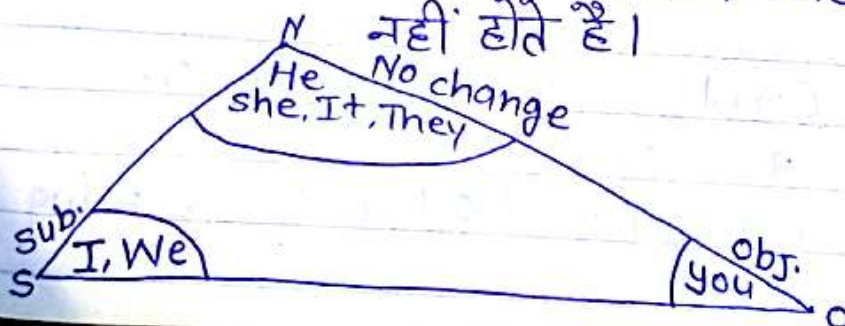 नहीं होते है।
N
No change
He
she, It, They
Sub.
I, We
S
Obj.
you
O